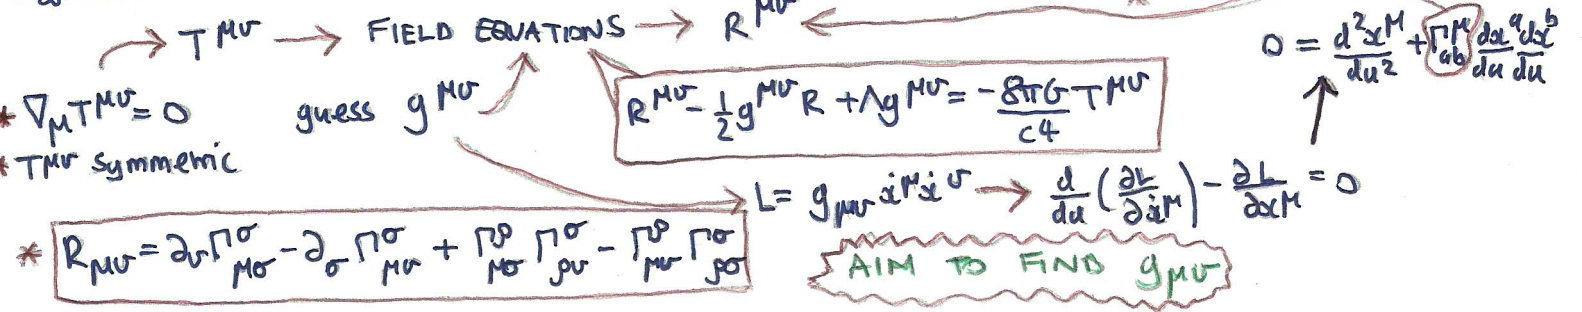 T^{μν} → FIELD EQUATIONS → R^{μν}
0 = d²x^μ/du² + Γ^μ_{ab} dx^a/du dx^b/du
* ∇_μ T^{μν} = 0
guess g^{μν}
R^{μν} - 1/2 g^{μν} R + Λg^{μν} = -8πG/c4 T^{μν}
* T^{μν} symmetric
L = g_{μν} ẋ^μ ẋ^ν → d/du (∂L/∂ẋ^μ) - ∂L/∂x^μ = 0
* R_{μν} = ∂_ν Γ^σ_{μσ} - ∂_σ Γ^σ_{μν} + Γ^ρ_{μσ} Γ^σ_{ρν} - Γ^ρ_{μν} Γ^σ_{ρσ}
AIM TO FIND g_{μν}